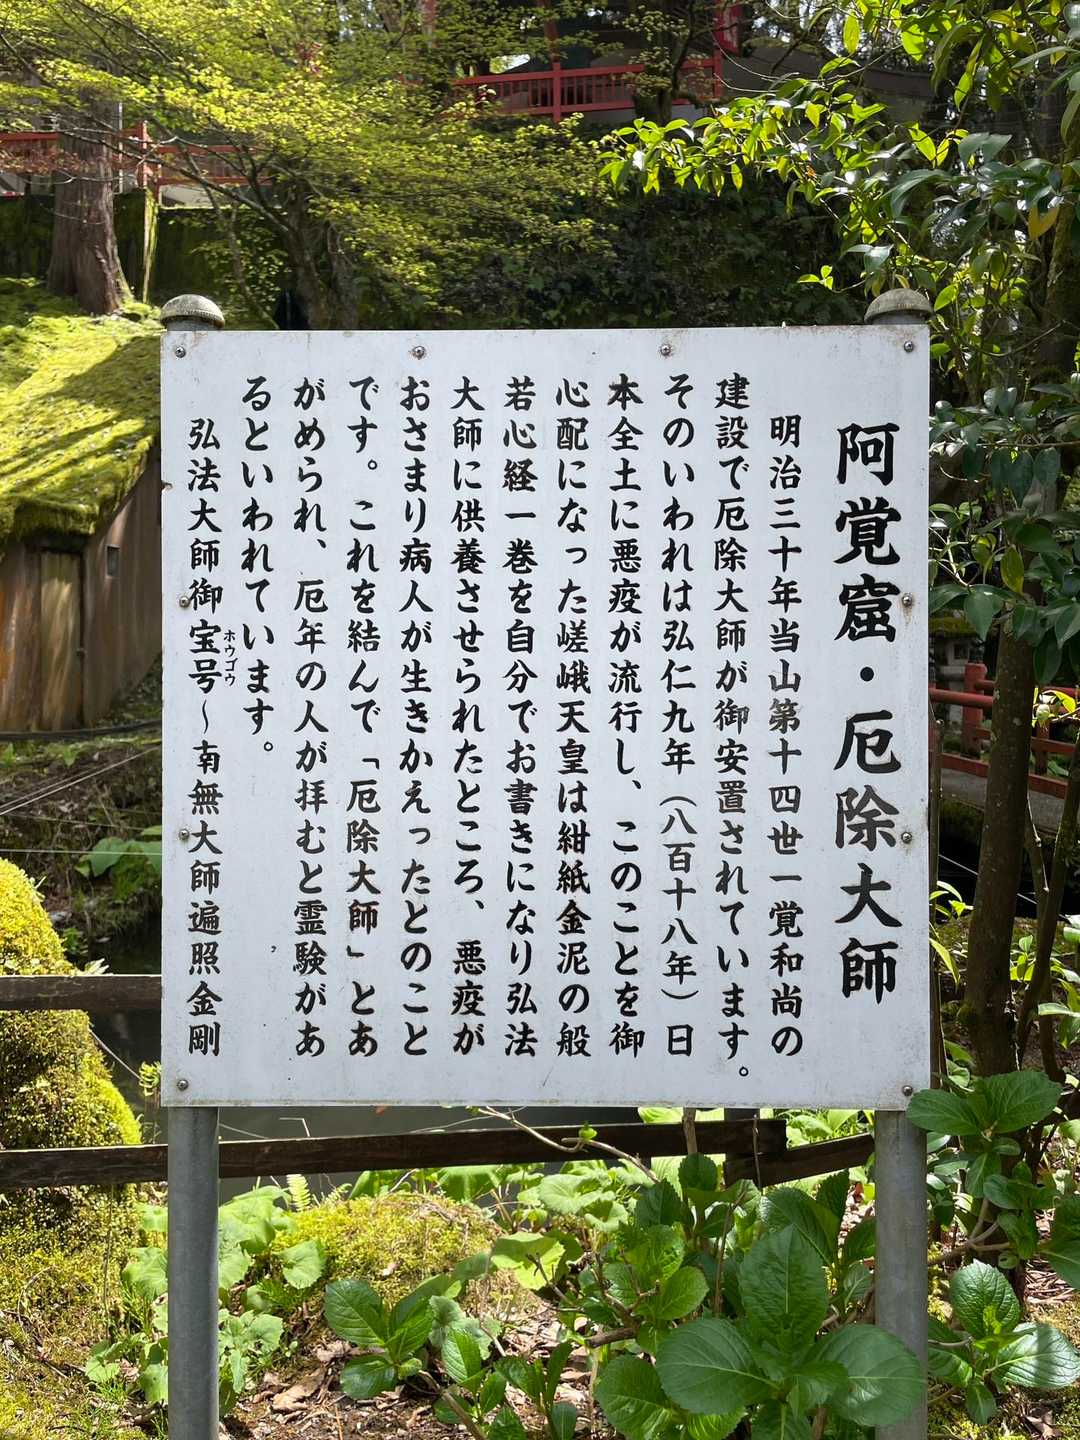 阿覚窟・厄除大師
明治三十年当山第十四世一覚和尚の
建設で厄除大師が御安置されています。
そのいわれは弘仁九年（八百十八年）日
本全土に悪疫が流行し、このことを御
心配になった嵯峨天皇は紺紙金泥の般
若心経一巻を自分でお書きになり弘法
大師に供養させられたところ、悪疫が
おさまり病人が生きかえったとのこと
です。これを結んで「厄除大師」とあ
がめられ、厄年の人が拝むと霊験があ
るといわれています。
弘法大師御宝号～南無大師遍照金剛
ホウゴウ